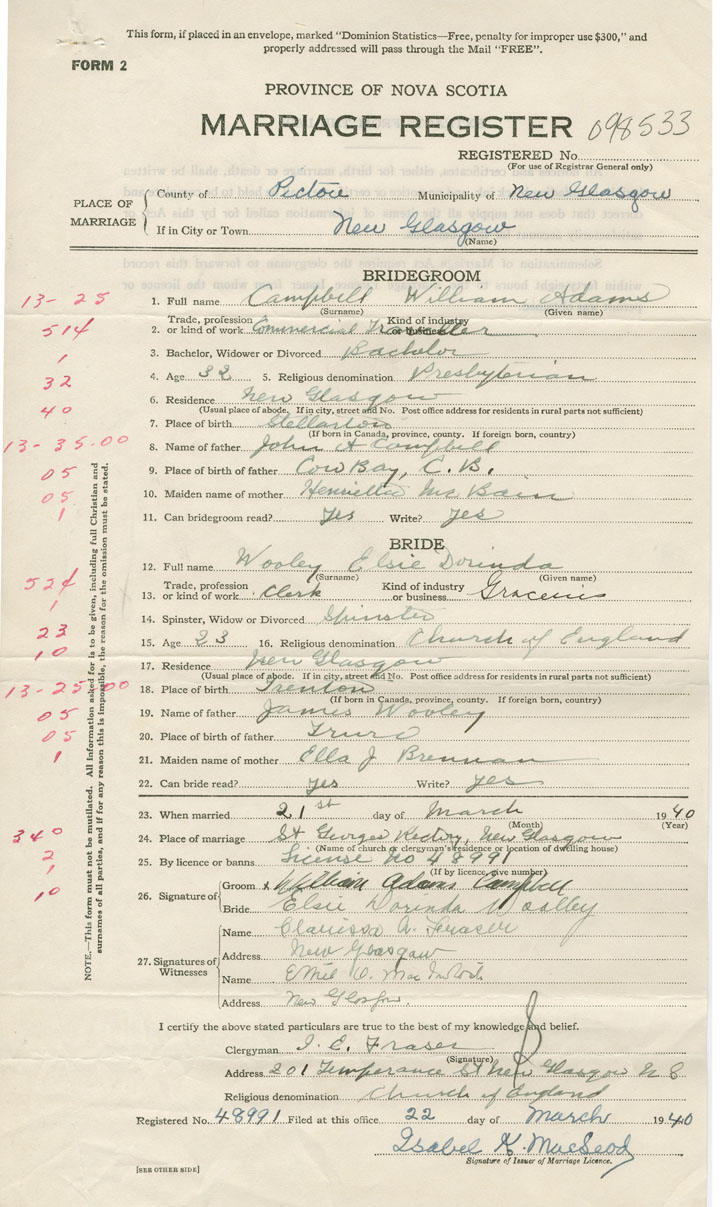 This form, if placed in an envelope, marked "Dominion Statistics—Free, penalty for improper use $300," and
properly addressed will pass through the Mail "FREE".
FORM 2
PROVINCE OF NOVA SCOTIA
MARRIAGE REGISTER 098533
REGISTERED No.
(For use of Registrar General only)
PLACE OF MARRIAGE
County of Pictou Municipality of New Glasgow
If in City or Town New Glasgow
(Name)
BRIDEGROOM
13-25
1. Full name Campbell William Adams
(Surname) (Given name)
514
2. Trade, profession or kind of work Commercial Traveller Kind of industry or business
1
3. Bachelor, Widower or Divorced Bachelor
32
4. Age 32 5. Religious denomination Presbyterian
40
6. Residence New Glasgow
(Usual place of abode. If in city, street and No. Post office address for residents in rural parts not sufficient)
13-35.00
7. Place of birth Stellarton
(If born in Canada, province, county. If foreign born, country)
8. Name of father John A Campbell
05
9. Place of father Cow Bay, C.B.
05
10. Maiden name of mother Henrietta McBain
1
11. Can bridegroom read? Yes Write? yes
BRIDE
12. Full name Wooley Elsie Dorinda
(Surname) (Given name)
524
13. Trade, profession or kind of work Clerk Kind of industry or business Groceries
1
14. Spinster, Widow or Divorced Spinster
23
15. Age 23 16. Religious denomination Church of England
10
17. Residence New Glasgow
(Usual place of abode. If in city, street and No. Post office address for residents in rural parts not sufficient)
13-25.00
18. Place of birth Trenton
(If born in Canada, province, county. If foreign born, country)
05
19. Name of father James Wooley
05
20. Place of birth of father Truro
1
21. Maiden name of mother Ella J Brennan
22. Can bride read? yes Write? yes
23. When married 21st day of March 1940
(Month) (Year)
340
24. Place of marriage St Georges Rectory, New Glasgow
(Name of church or clergyman's residence or location of dwelling house)
2
25. By licence or banns License No 48991
(If by licence, give number)
1
10
26. Signature of
Groom x William Adams Campbell
Bride Elsie Dorinda Woolley
27. Signatures of Witnesses
Name Clarissa A. Fraser
Address New Glasgow
Name
Address New Glasgow.
NOTE.—This form must not be mutilated. All Information asked for is to be given, including full Christian and
surnames of all parties, and if for any reason this is impossible, the reason for the omission must be stated.
I certify the above stated particulars are true to the best of my knowledge and belief.
Clergyman I. E. Fraser
(Signature)
Address 201 Temperance St New Glasgow N S
Religious denomination Church of England
Registered No. 48991 Filed at this office 22 day of March 1940
Isabel K. MacLeod
Signature of Issuer of Marriage Licence.
[SEE OTHER SIDE]